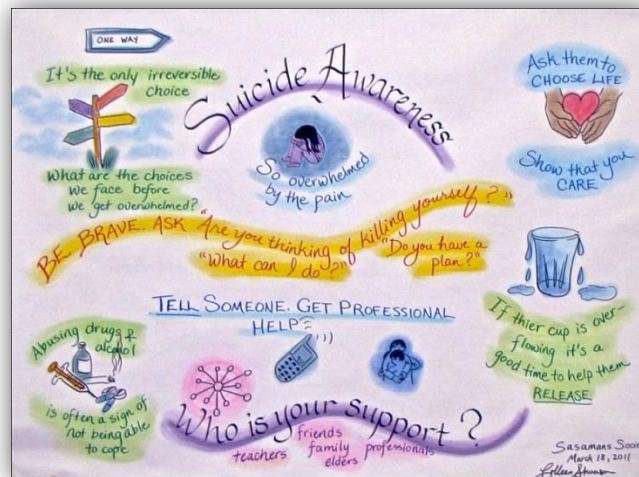 ONE WAY
It's the only irreversible
choice
What are the choices
we face before
we get overwhelmed?
Suicide Awareness
So overwhelmed
by the pain
Ask them to
CHOOSE LIFE
Show that you
CARE
BE BRAVE. ASK "Are you thinking of killing yourself?"
"What can I do?"
"Do you have a
plan?"
TELL SOMEONE. GET PROFESSIONAL
HELP
If thier cup is over-
flowing it's a
good time to help them
RELEASE
Abusing drugs &
alcohol
is often a sign of
not being able
to cope
Who is your support?
teachers friends family elders professionals
Sasamans Soci
March 18, 2011